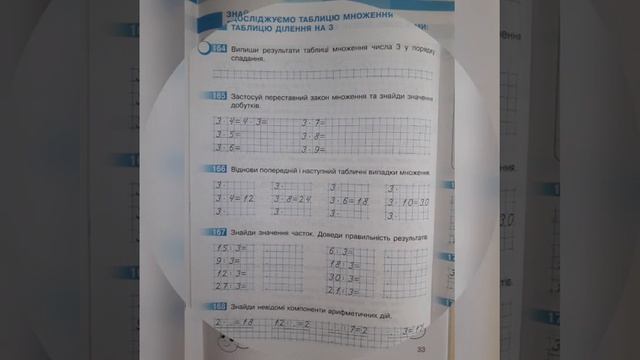 ДОСЛІДЖУЄМО ТАБЛИЦЮ МНОЖЕННЯ
ТАБЛИЦЮ ДІЛЕННЯ НА 3
164 Випиши результати таблиці множення числа 3 у порядку
спадання.
165 Застосуй переставний закон множення та знайди значення
добутків.
3 · 4 = 4 · 3 = 3 · 7 =
3 · 5 = 3 · 8 =
3 · 6 = 3 · 9 =
166 Віднови попередній і наступний табличні випадки множення.
3 · 3 · 3 · 3 ·
3 · 4 = 12 3 · 8 = 24 3 · 6 = 18 3 · 10 = 30
3 · 3 · 3 · 3 ·
167 Знайди значення часток. Доведи правильність результатів.
15 : 3 = 6 : 3 =
9 : 3 = 18 : 3 =
12 : 3 = 30 : 3 =
27 : 3 = 21 : 3 =
168 Знайди невідомі компоненти арифметичних дій.
33